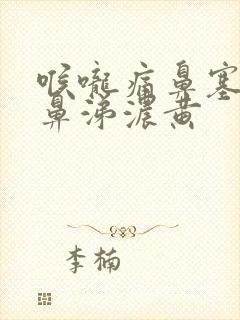 喉咙痛鼻塞
鼻涕浓黄
李楠